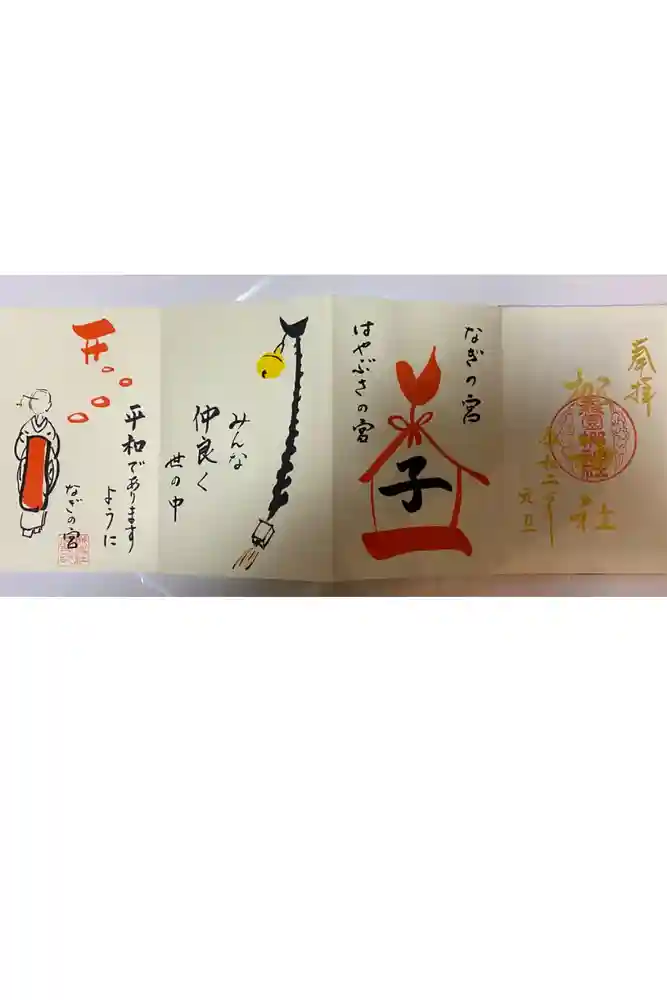 奉拝
令和二年
元旦
なぎの宮
子
はやぶさの宮
みんな
仲良く
世の中
平和であります
ように
なぎの宮